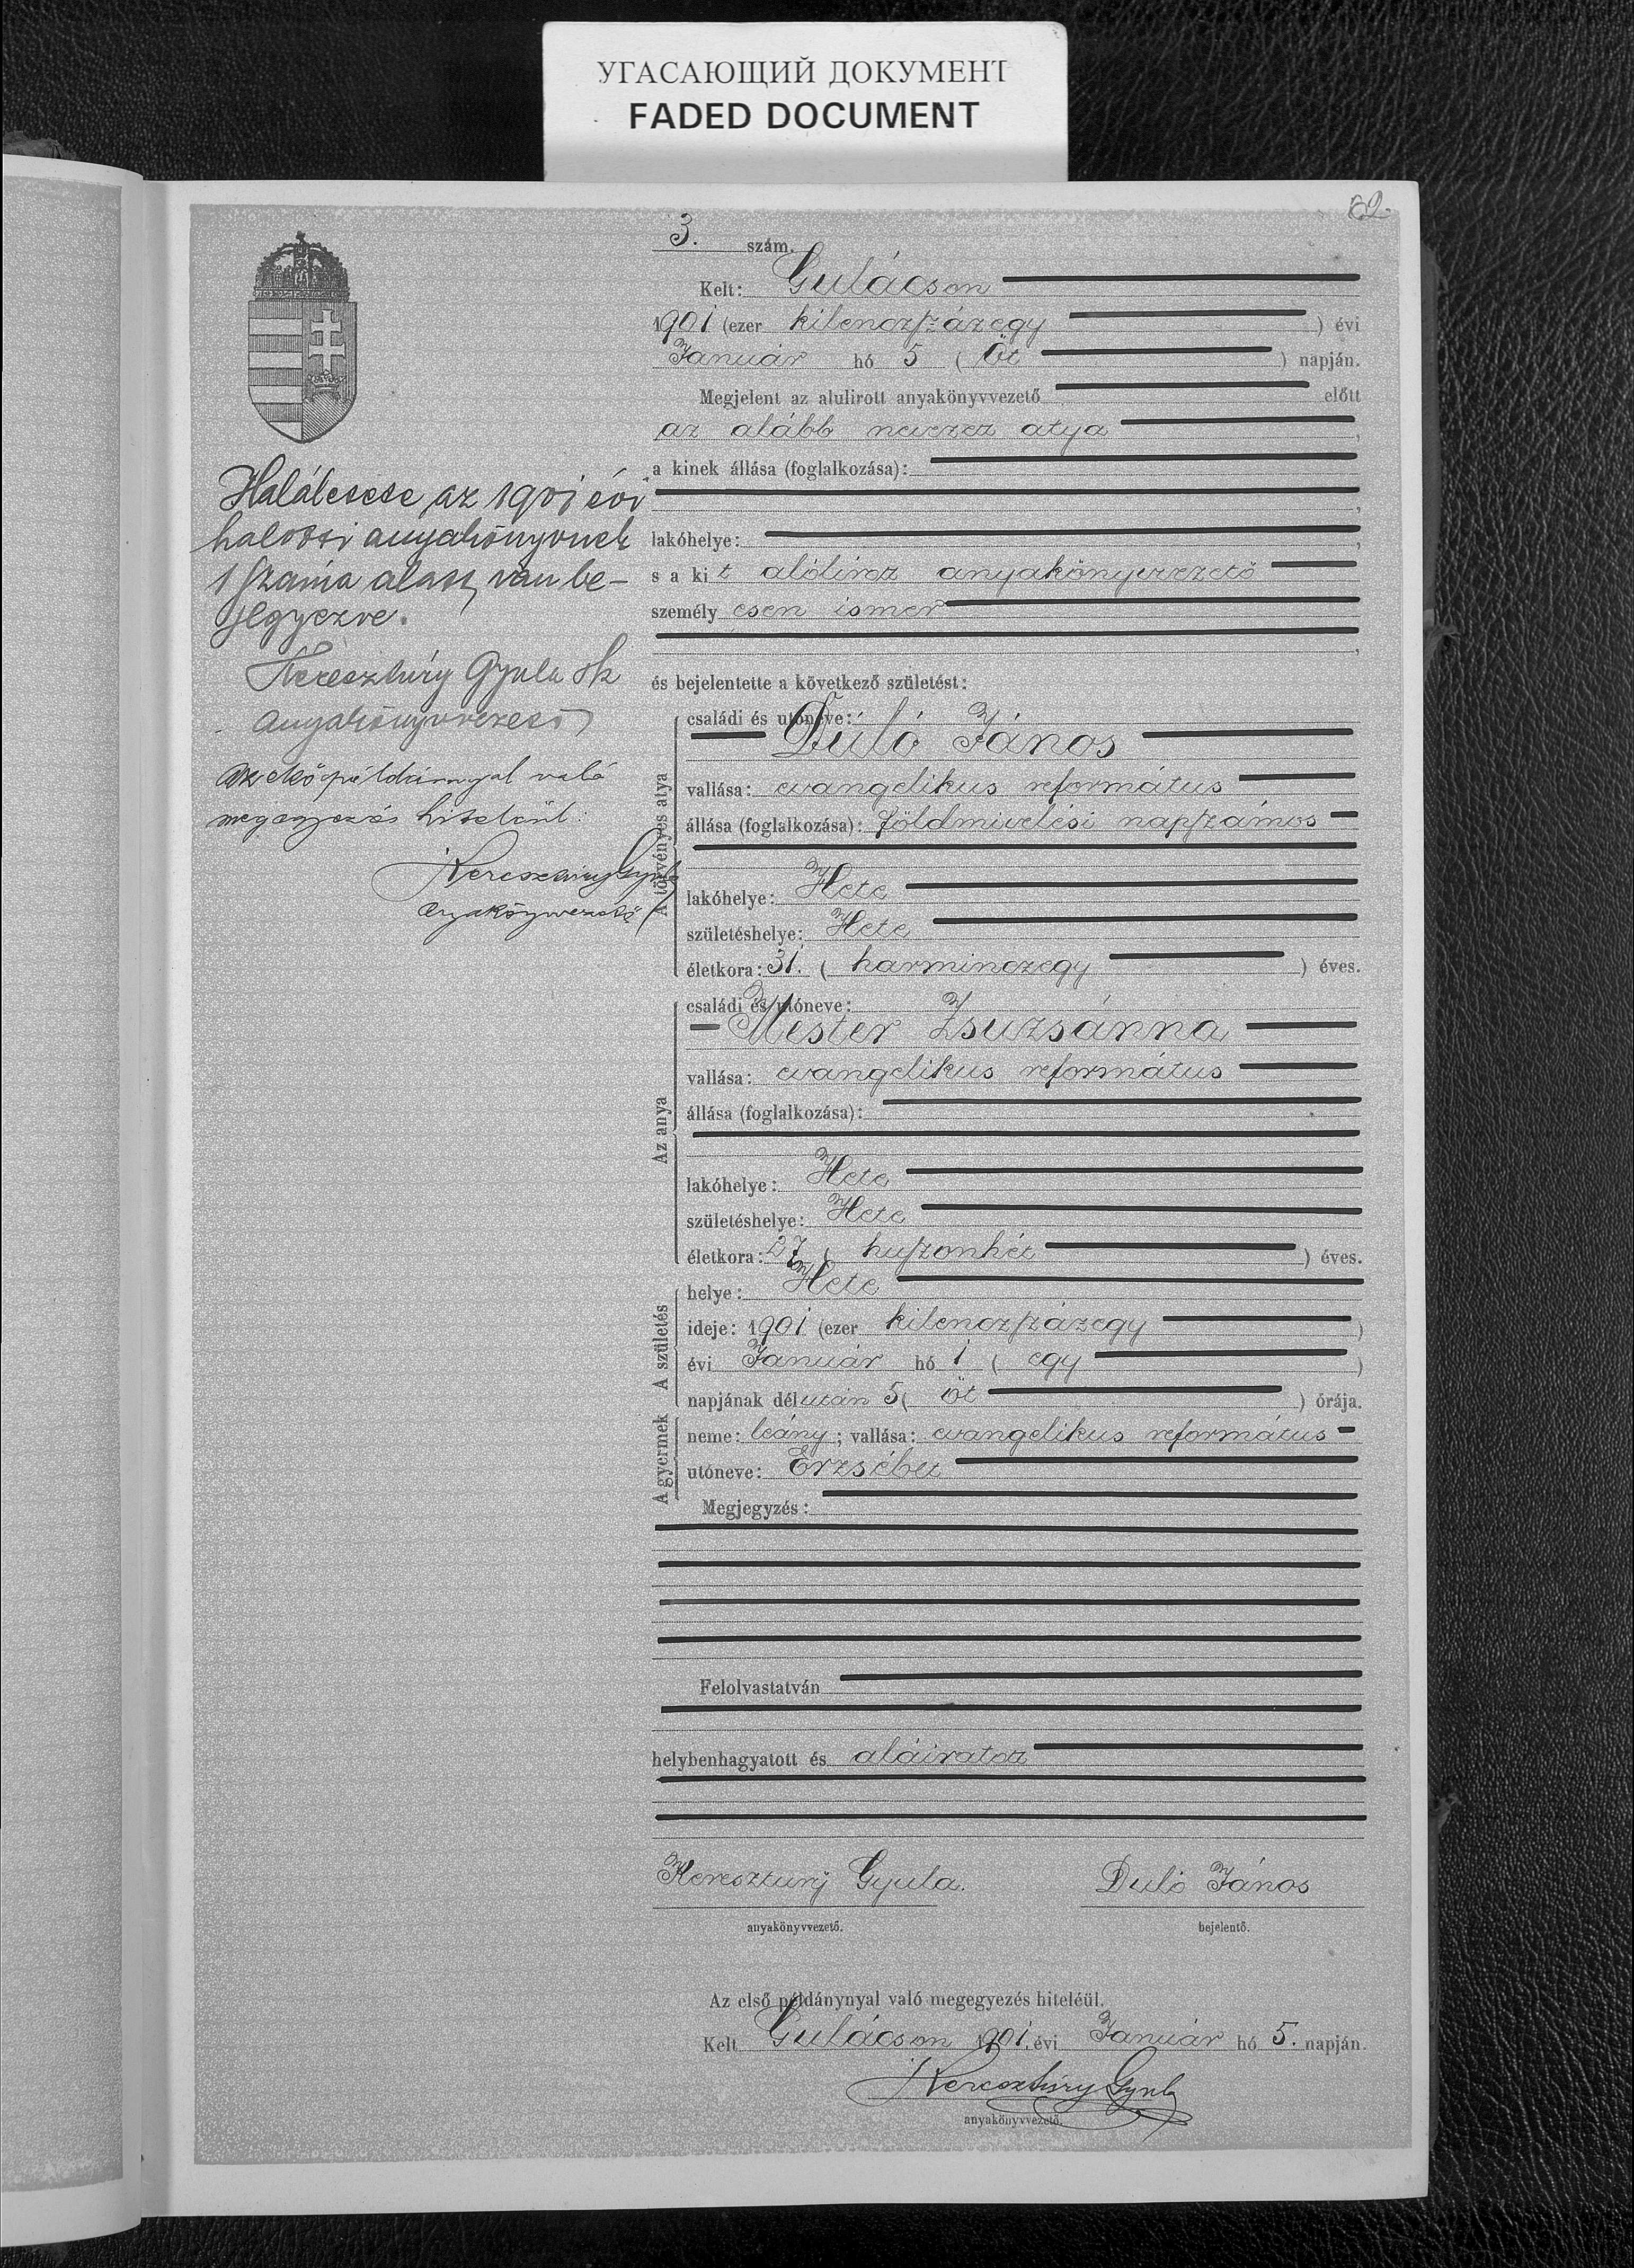 УГАСАЮЩИЙ ДОКУМЕНТ
FADED DOCUMENT
62.
3. szám.
Kelt: Gulácson
1901 (ezer kilenczszázegy ) évi
Január hó 5 ( öt ) napján.
Megjelent az alulirott anyakönyvvezető előtt
az alább nevezet atya ,
a kinek állása (foglalkozása):
lakóhelye: ,
s a kit alólirot anyakönyvvezető
személy esen ismer
és bejelentette a következő születést:
A törvényes atya
családi és utóneve:
Duló János
vallása: evangelikus református
állása (foglalkozása): földmivelési napszámos
lakóhelye: Hete
születéshelye: Hete
életkora: 31. ( harminczegy ) éves.
Az anya
családi és utóneve:
Mester Zsuzsánna
vallása: evangelikus református
állása (foglalkozása):
lakóhelye: Hete
születéshelye: Hete
életkora: 27 ( huszonhét ) éves.
A születés
helye: Hete
ideje: 1901 (ezer kilenczszázegy )
évi Január hó 1 ( egy )
napjának délután 5 ( öt ) órája.
A gyermek
neme: leány; vallása: evangelikus református
utóneve: Erzsébet
Megjegyzés:
Felolvastatván
helybenhagyatott és aláiratot
Keresztury Gyula. Duló János
anyakönyvvezető. bejelentő.
Az első példánynyal való megegyezés hiteléül.
Kelt Gulácson 1901. évi Január hó 5. napján.
Keresztúry Gyula
anyakönyvvezető.
Halálesete az 1901 évi
halotti anyakönyvnek
1 száma alatt van be-
jegyezve.
Keresztúry Gyula sk
anyakönyvvezető
Az első példánnyal való
megegyezés hiteléül:
Keresztúry Gyula
anyakönyvvezető